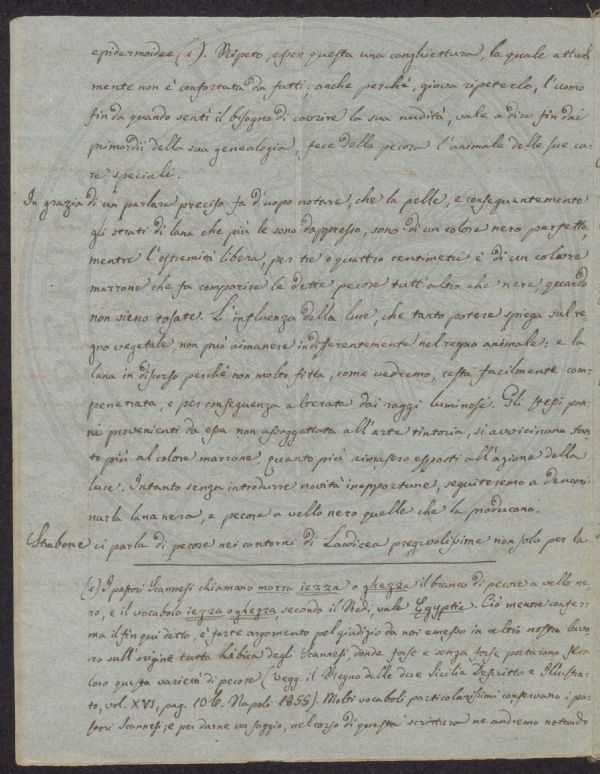 epidermoidee (1). Ripeto, esser questa una conghiettura, la quale attual
mente non è confortata da fatti; anche perché, giova ripeterlo, l'uomo
fin da quando sentì il bisogno di covrire la sua nudità, vale a dire fin dai
primordii della sua genealogia, fece della pecora l'animale delle sue cu-
re speciali.
In grazia di un parlare preciso fa d'uopo notare, che la pelle, e conseguentemente
gli strati di lana che più le sono dappresso, sono di un colore nero perfetto,
mentre l'estremità libera, per tre o quattro centimetri è di un colore
marrone che fa comparire le dette pecore tutt'altro che nere, quando
non sieno tosate. L'influenza della luce, che tanto potere spiega sul re
gno vegetale, non può rimanere indifferentemente nel regno animale: e la
lana in discorso perché non molto fitta, come vedremo, resta facilmente com-
penetrata, e per conseguenza alterata dai raggi luminosi. Gli stessi pan-
ni provenienti da essa non assoggettata all'arte tintoria, si avvicinano tan
to più al colore marrone, quanto più rimasero esposti all'azione della
luce. Intanto senza introdurre novità inopportune, seguiteremo a denomi
narla lana nera, e pecore a vello nero quelle che la producono.
Strabone ci parla di pecore nei contorni di Laodicea pregevolissime non solo per la
(1) I pastori Scannesi chiamano morra iezza o ghezza il branco di pecore a vello ne
ro, e il vocabolo iezza o ghezza, secondo il Redi, vale Egyptia. Ciò mentre confer-
ma il fin qui detto, è forte argomento pel giudizio da noi emesso in altro nostro lavo
ro sull'origine tutta Libica degli Scannesi, donde forse e senza forse portarono seco
loro questa varietà di pecore (Vegg. il Regno delle due Sicilie Descritto e Illustra-
to, vol. XVI, pag. 106. Napoli 1855). Molti vocaboli particolarissimi conservano i pa-
stori Scannesi; e per darne un saggio, nel corso di questa scrittura ne andremo notando